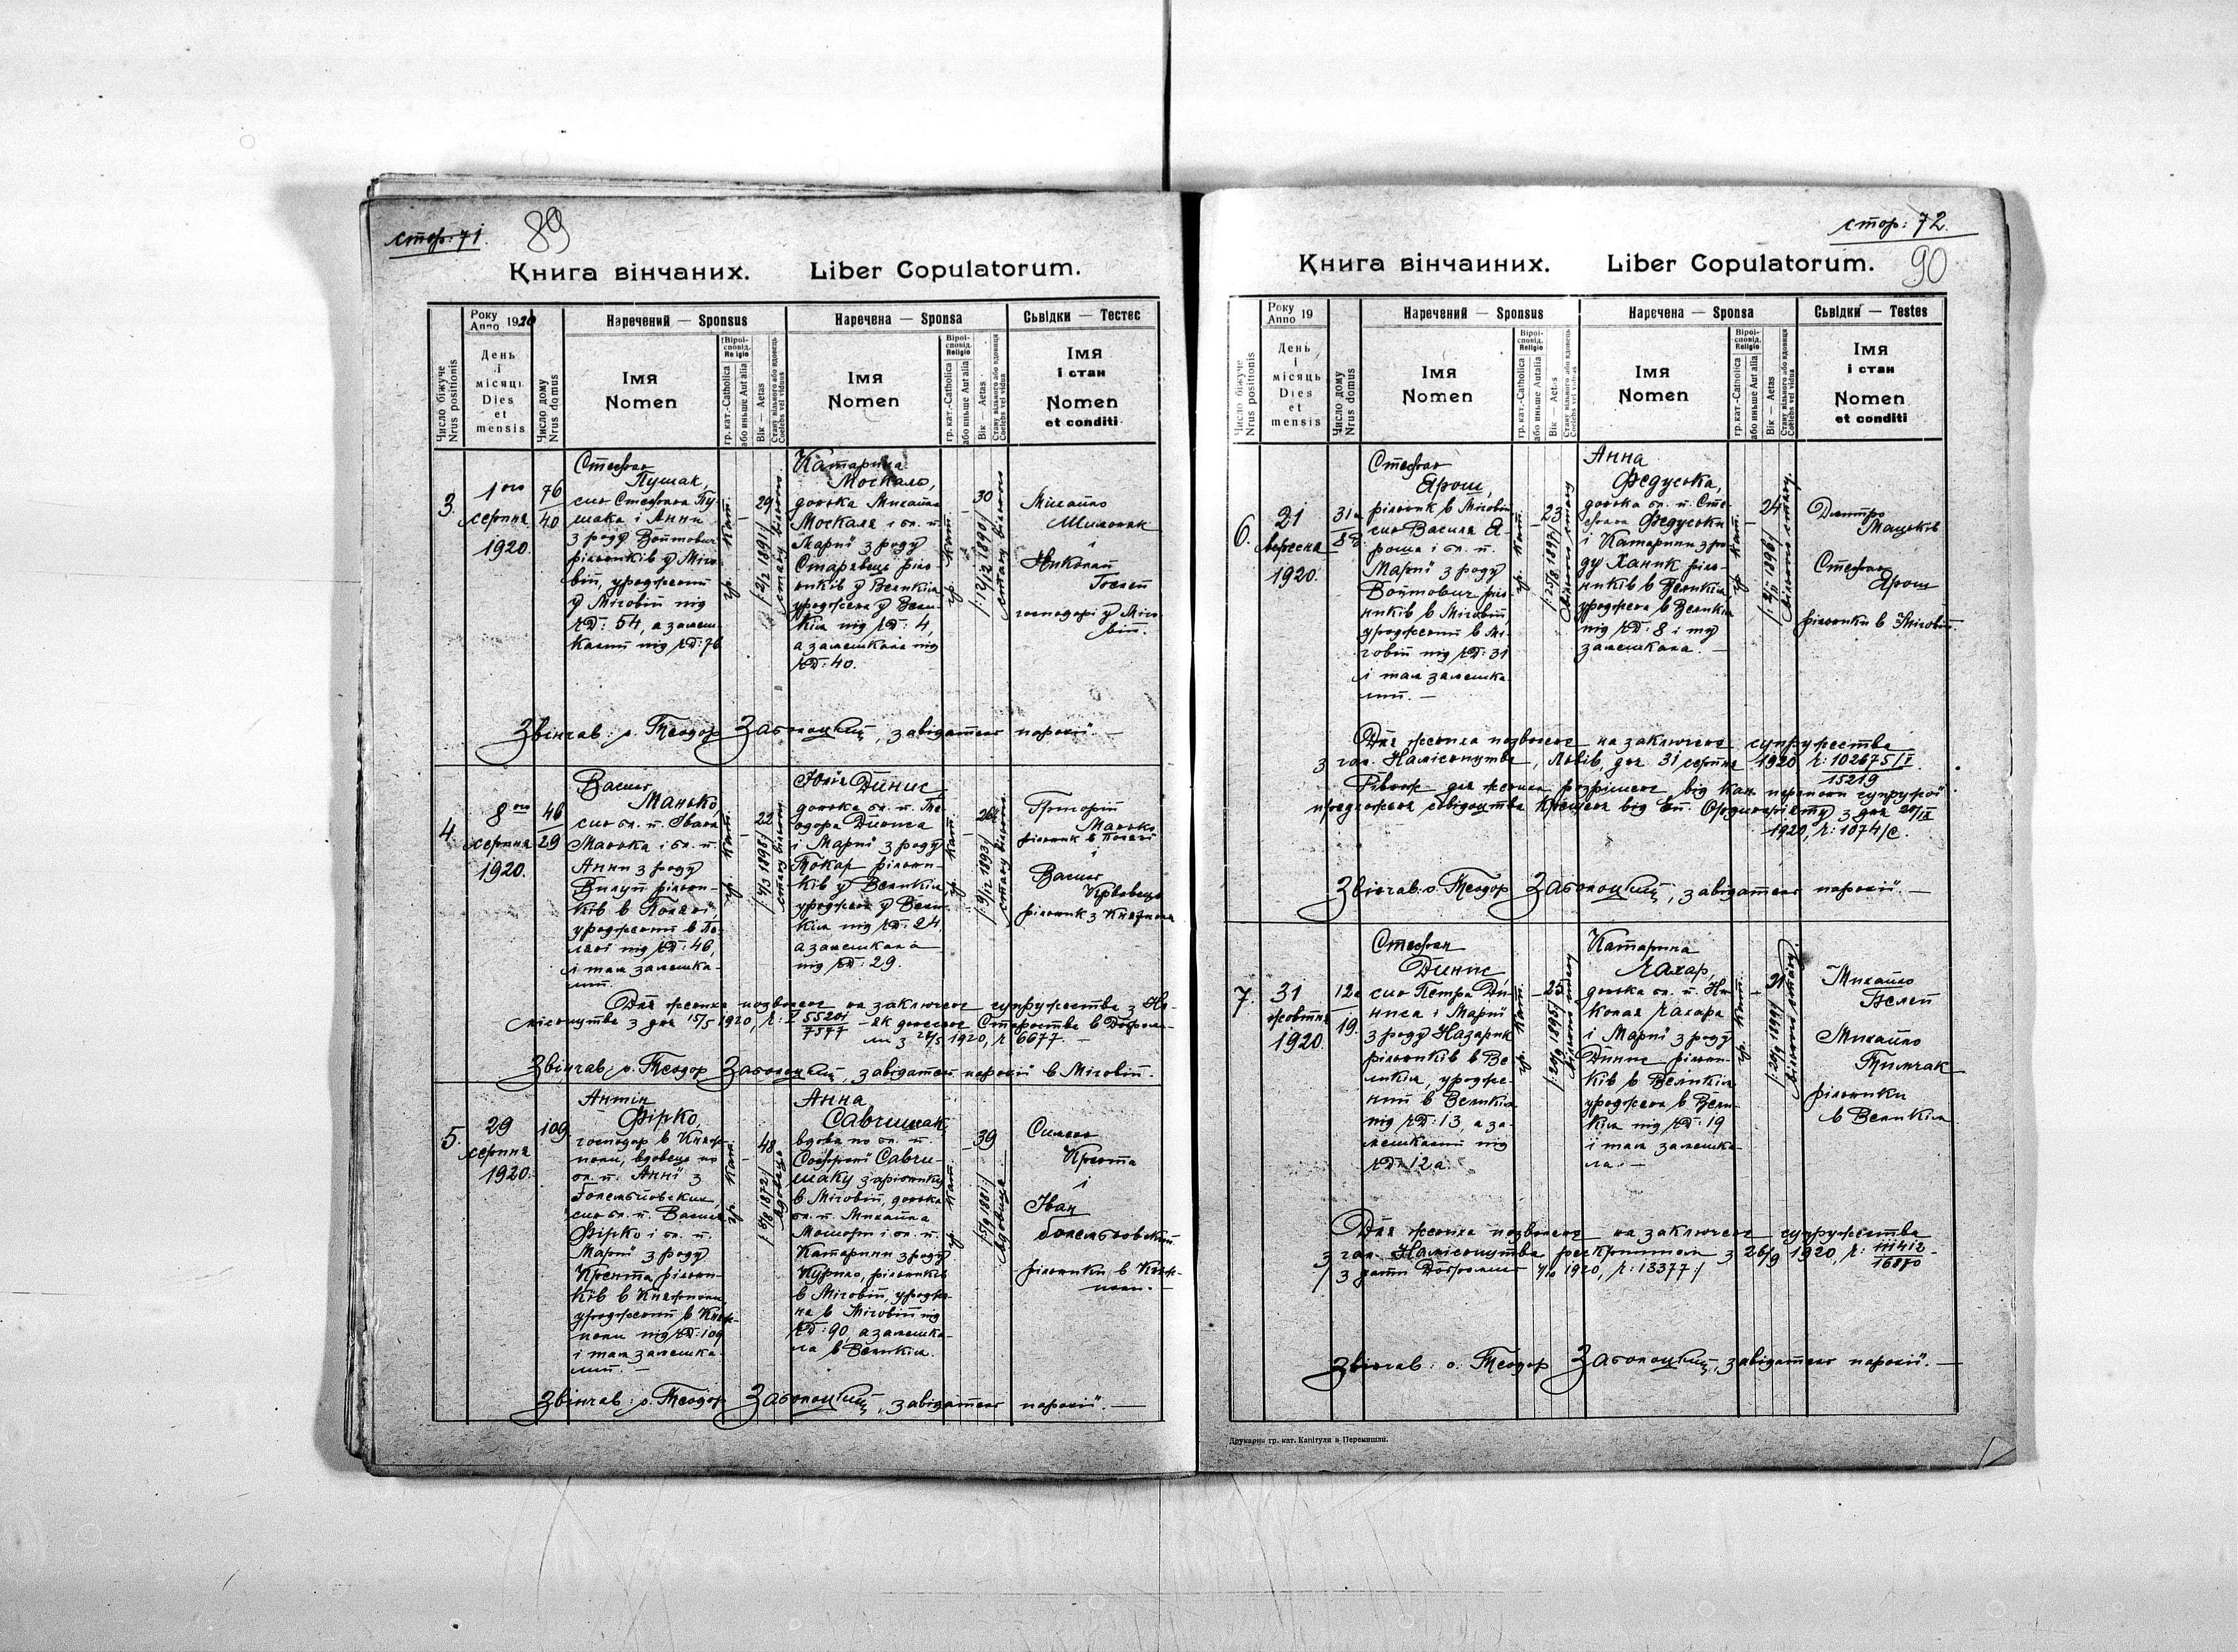 стор: 71.
89
Книга вінчаних. Liber Copulatorum.
Число біжуче
Nrus positionis
Року
Anno 1920
День
і
місяць
Dies
et
mensis
Число дому
Nrus domus
Наречений — Sponsus
Імя
Nomen
Віроі-
сповід.
Religio
гр. кат.-Catholica
або иньше Aut alia
Вік — Aetas
Стану вільного або вдовець
Coelebs vel viduus
Наречена — Sponsa
Імя
Nomen
Віроі-
сповід.
Religio
гр. кат.-Catholica
або иньше Aut alia
Вік — Aetas
Стану вільного або вдовиця
Coelebs vel vidua
Сьвідки — Тестес
Імя
і стан
Nomen
et conditi
3.
1ого
серпня
1920.
76
40
Стефан
Пушак,
син Стефана Пу-
шака і Анни
з роду Войтович
рільників у Міго-
віи, уроджений
у Міговій під
чД: 54, а замеш-
калий під чД: 76
гр. кат.
29
/:2/2 1891/
стану вільного
Катарина
Москаль,
донька Михайла
Москаля і бл. п.
Марії з роду
Старявець ріль-
ників у Великім
уроджена у Вели-
кім під чД: 4,
а замешкала під
чД: 40.
гр. кат.
30
/:12/2 1890/
стану вільного
Михайло
і
Николай
господарі у Міго-
вій.
Звінчав: о. Теодор Заболоцкий, завідатель парохії. —
4.
8ого
серпня
1920.
46
29
Василь
Манько
син бл. п. Івана
Манька і бл. п.
Анни з роду
рільни-
ків в
уроджений в
під чД: 46,
і там замешка-
лий.
гр. кат.
22
/:4/3 1898/
стану вільного
Юлія Динис,
донька бл. п. Те-
одора Диниса
і Марії з роду
Токар рільни-
ків у Великім
уроджена у Вели-
кім під чД: 24,
а замешкала
під чД: 29.
гр. кат.
26
/:9/12 1893/
стану вільного
Григорій
Манько
рільник в
і
Василь
рільник з Княжполя
Для жениха позволенє на заключенє супружества з На-
місництва з дня 15/5 1920, ч: 55201
7577 — як донесенє Староства в Доброми-
ли з 26/5 1920, ч 6677. —
Звінчав: о. Теодор Заболоцкий, завідатель парохії в Міговій.
5.
29
серпня
1920.
109
Антін
Фірко,
господар в Княж-
поли, вдовець по
бл. п. Анні з
син бл. п. Василя
Фірко і бл. п.
Марії з роду
рільни-
ків в Княжполи
уроджений в Княж-
поли під чД: 109
і там замешка-
лий. —
гр. кат.
48
/:6/8 1872/
вдовець
Анна
Савчишак,
вдова по бл. п.
Савчи-
шаку рільнику
в Міговій, донька
бл. п. Михайла
і бл. п.
Катарини з роду
Курило, рільників
в Міговій, уродже-
на в Міговій під
чД: 90, а замешка-
ла в Великім.
гр. кат.
39
/:5/9 1881/
вдовиця
і
Іван
рільники в Княж-
поли. —
Звінчав: о. Теодор Заболоцкий, завідатель парохії. —
стор: 72.
90
Книга вінчаиних. Liber Copulatorum.
Число біжуче
Nrus positionis
Року
Anno 19
День
і
місяць
Dies
et
mensis
Число дому
Nrus domus
Наречений — Sponsus
Імя
Nomen
Віроі-
сповід.
Religio
гр. кат.-Catholica
або иньше Autalia
Вік — Aetas
Стану вільного або вдовець
Coelebs vel viduus
Наречена — Sponsa
Імя
Nomen
Віроі-
сповід.
Religio
гр. кат.-Catholica
або иньше Aut alia
Вік — Aetas
Стану вільного або вдовиця
Coelebs vel vidua
Сьвідки — Testes
Імя
і стан
Nomen
et conditi
6.
21
вересня
1920.
31
8
Стефан
Ярош,
рільник в Міговій
син Василя Я-
роша і бл. п.
Марії з роду
Войтович ріль-
ників в Міговій
уроджений в Мі-
говій під чД: 31
і там замешка-
лий. —
гр. кат.
23
/:25/8 1897/
вільного стану
Анна
Федуська,
донька бл. п. Сте-
фана Федуська
і Катарини з ро-
ду Ханик ріль-
ників в Великім
уроджена в Великім
під чД: 8 і ту
замешкала. —
гр. кат.
24
1896/
вільного стану.
Дмитро
Мацьків
Стефан
Ярош
рільники в Міговій.
Для жениха позволенє на заключенє супружества
з гал. Намісництва, Львів, дня 31 серпня 1920 ч: 102675/I
15219
від
1920, ч: 1074/с.
Звінчав: о. Теодор Заболоцкий, завідатель парохії. —
7.
31
жовтня
1920.
12а
19.
Стефан
Динис,
син Петра Ди-
ниса і Марії
з роду Назарик
рільників в Ве-
ликім, уродже-
ний в Великім
під чД: 13, а за-
мешкалий під
чД: 12а.
гр. кат.
25
1895/
вільного стану
Катарина
Лахар,
донька бл. п. Ни-
колая Лахара
і Марії з роду
Динис рільни-
ків в Великім
уроджена в Вели-
кім під чД: 19
і там замешка-
ла. —
гр. кат.
21
1899/
вільного стану.
Михайло
Телеп
Михайло
Тимчак
рільники
в Великім
Для жениха позволенє на заключенє супружества
з гал. Намісництва рескриптом з 26/9 1920, ч: 111412
16870
/з дати Добромиль 4/10 1920, ч: 13377/
Звінчав: о. Теодор Заболоцкий, завідатель парохії. —
Друкарня гр. кат. Капітули в Перемишли.